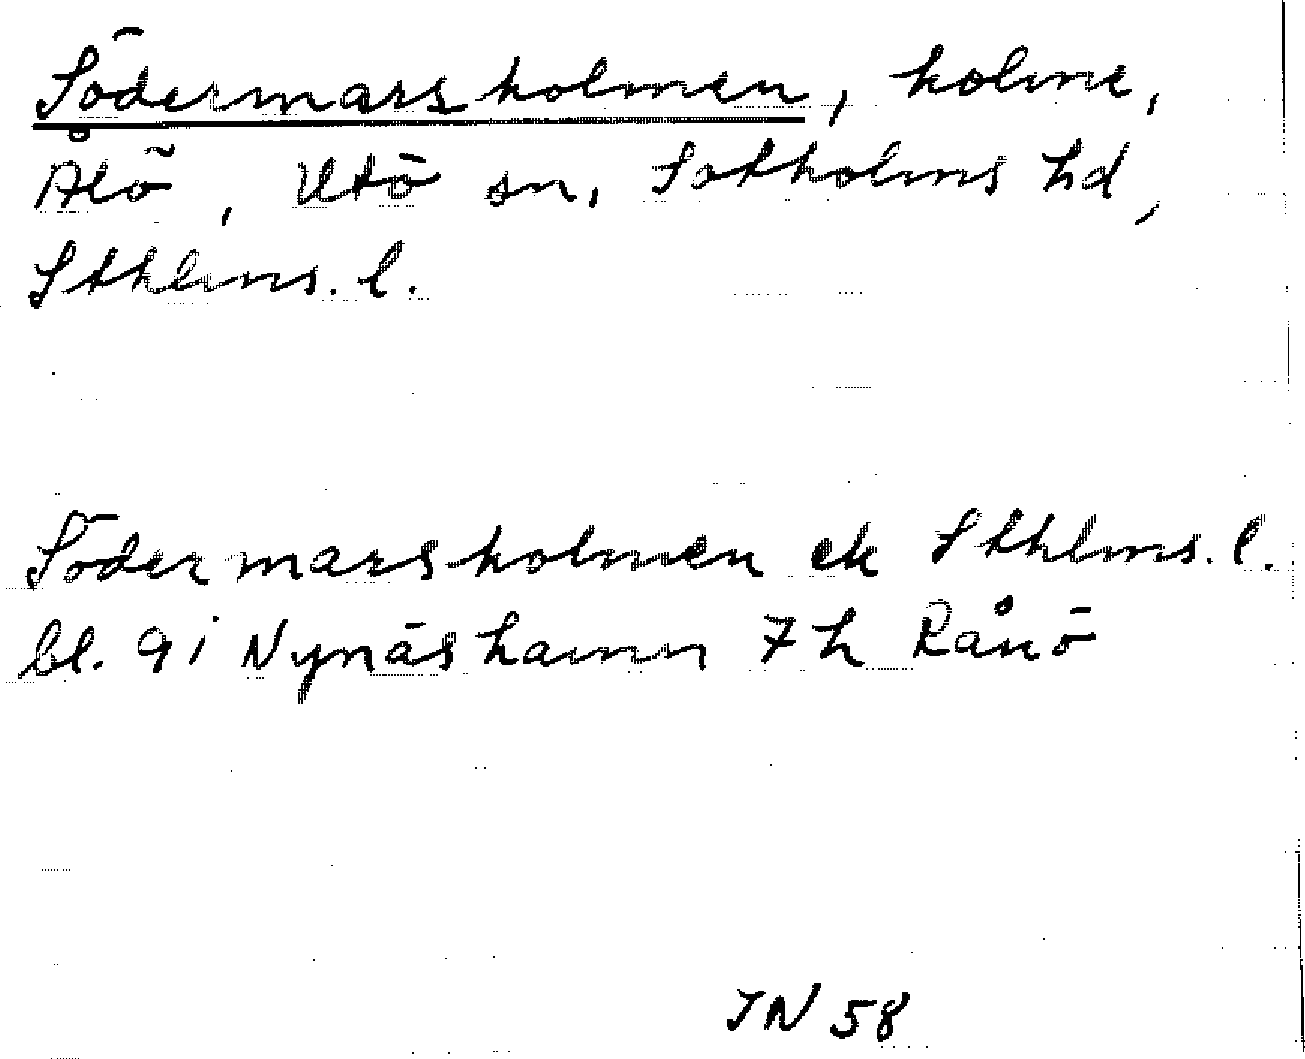 Södermarsholmen, holme,
Ålö, Utö sn, Sotholms hd,
Sthlms. l.
Södermarsholmen ek Sthlms. l.
bl. 9i Nynäshamn 7h Rånö
JN 58